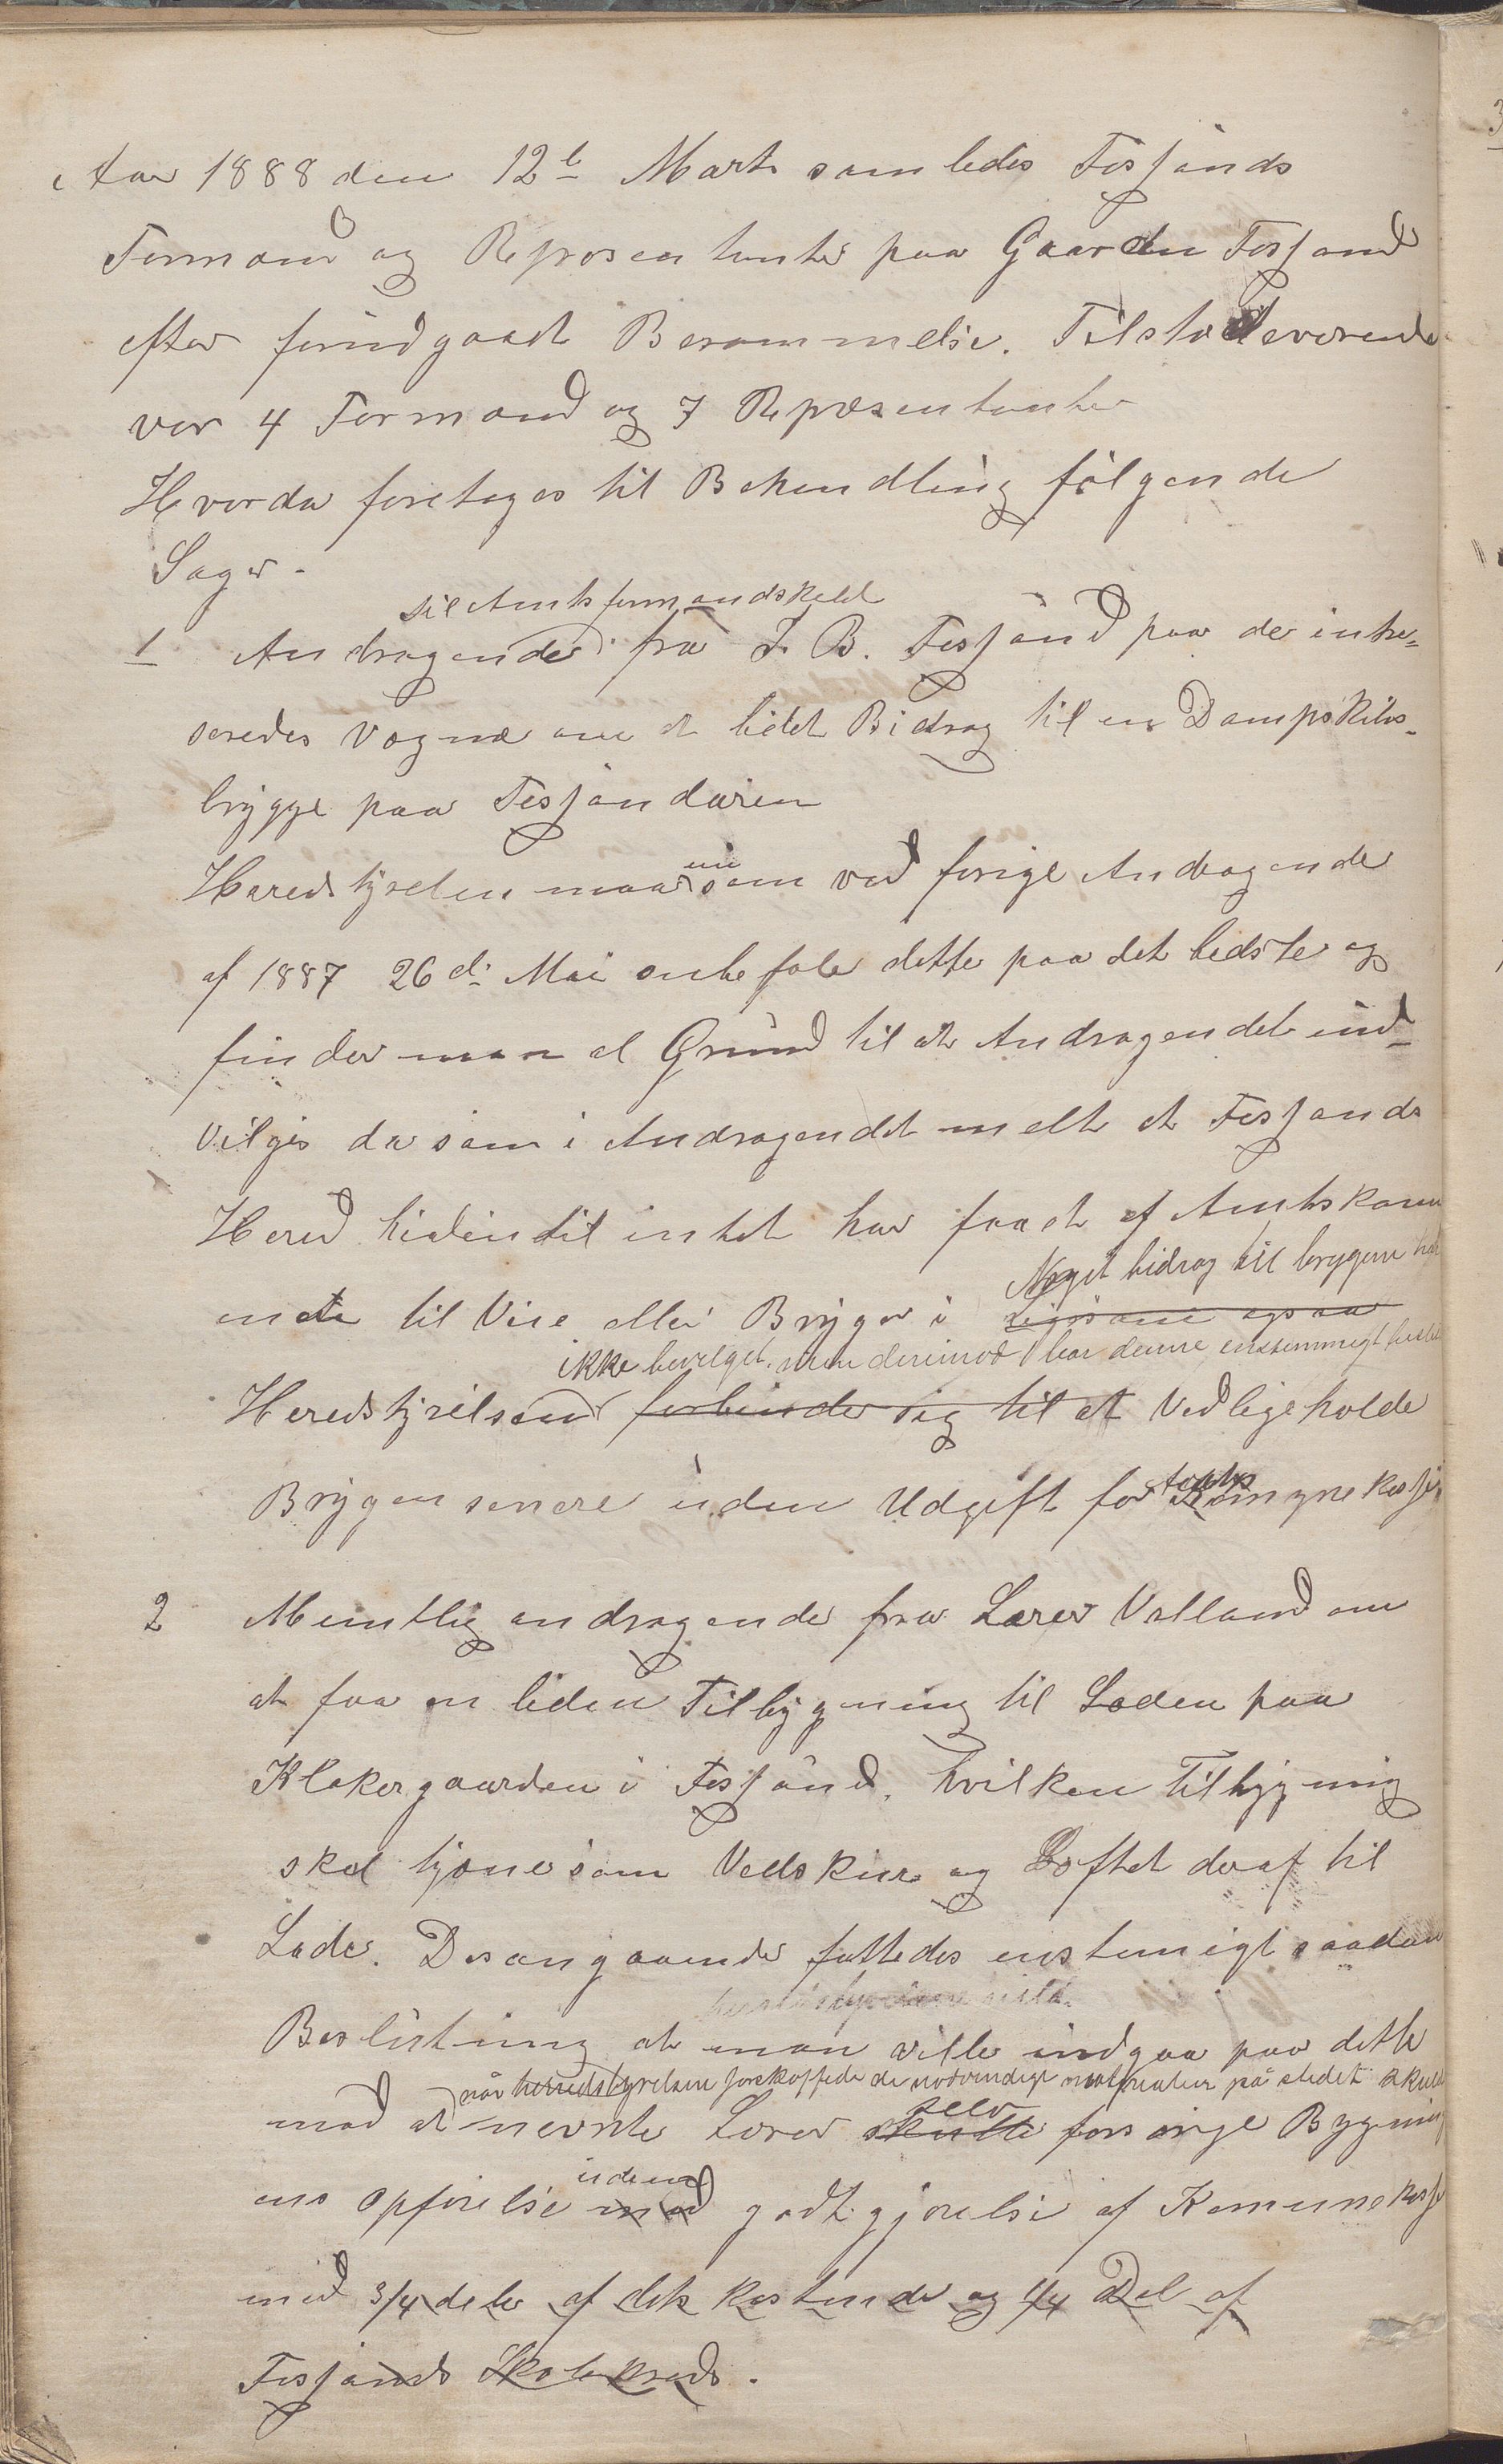 Aar 1888 den 12te Marts samledes Fosjands
Formænd og Repræsentanter paa Gaarden Fosjand
efter forudgaaet Berammelse. Tilstedeverende
var 4 Formænd og 7 Repræsentanter
Hvorda foretoges til Behandling følgende
Sager.
til Amtsformandskabet
1 Andragende fra J. B. Fosjand paa de intre-
seredes Vægne om et lidet Bidrag til en Dampskibs-
brygge paa Fosjandøren
nu
Heredstyrelsen maa som ved forige Andragende
af 1887 26de Mai anbefale dette paa det bedste og
finder man al Grund til at Andragendet ind-
vilges da som i Andragendet meldt at Fosjands
Hered hidindtil intet har faaet af Amtskomu
Noget bidrag til bryggen har
nede til Veie eller Brygger i Ligesom ogsaa
ikke bevilget, men derimod har denne enstemmigt beslut
Heredstyrelsen forbinder sig til at Vedligeholde
Bryggen senere uden Udgift for Amts Komunekassen
2 Muntlig andragende fra Lærer Valland om
at faa en liden Tilbygning til Loden paa
Klokergaarden i Fosjand, hvilken Tilbygning
skal tjene som Vedskur og Loftet deraf til
Lade. Desangaaende fattedes enstemigt saadan
Beslutning at man ville indgaa paa dette
når herredstyrelsen forskaffede de nødvendige materialier på stedet skulde
mod at nevnte Lærer skulde selv forsørge Bygning
uden
ens Opførelse mod godtgjørelse af Komunekassen
med 3/4 dele af dets kostende og 1/4 Del af
Fosjands Skolekreds.